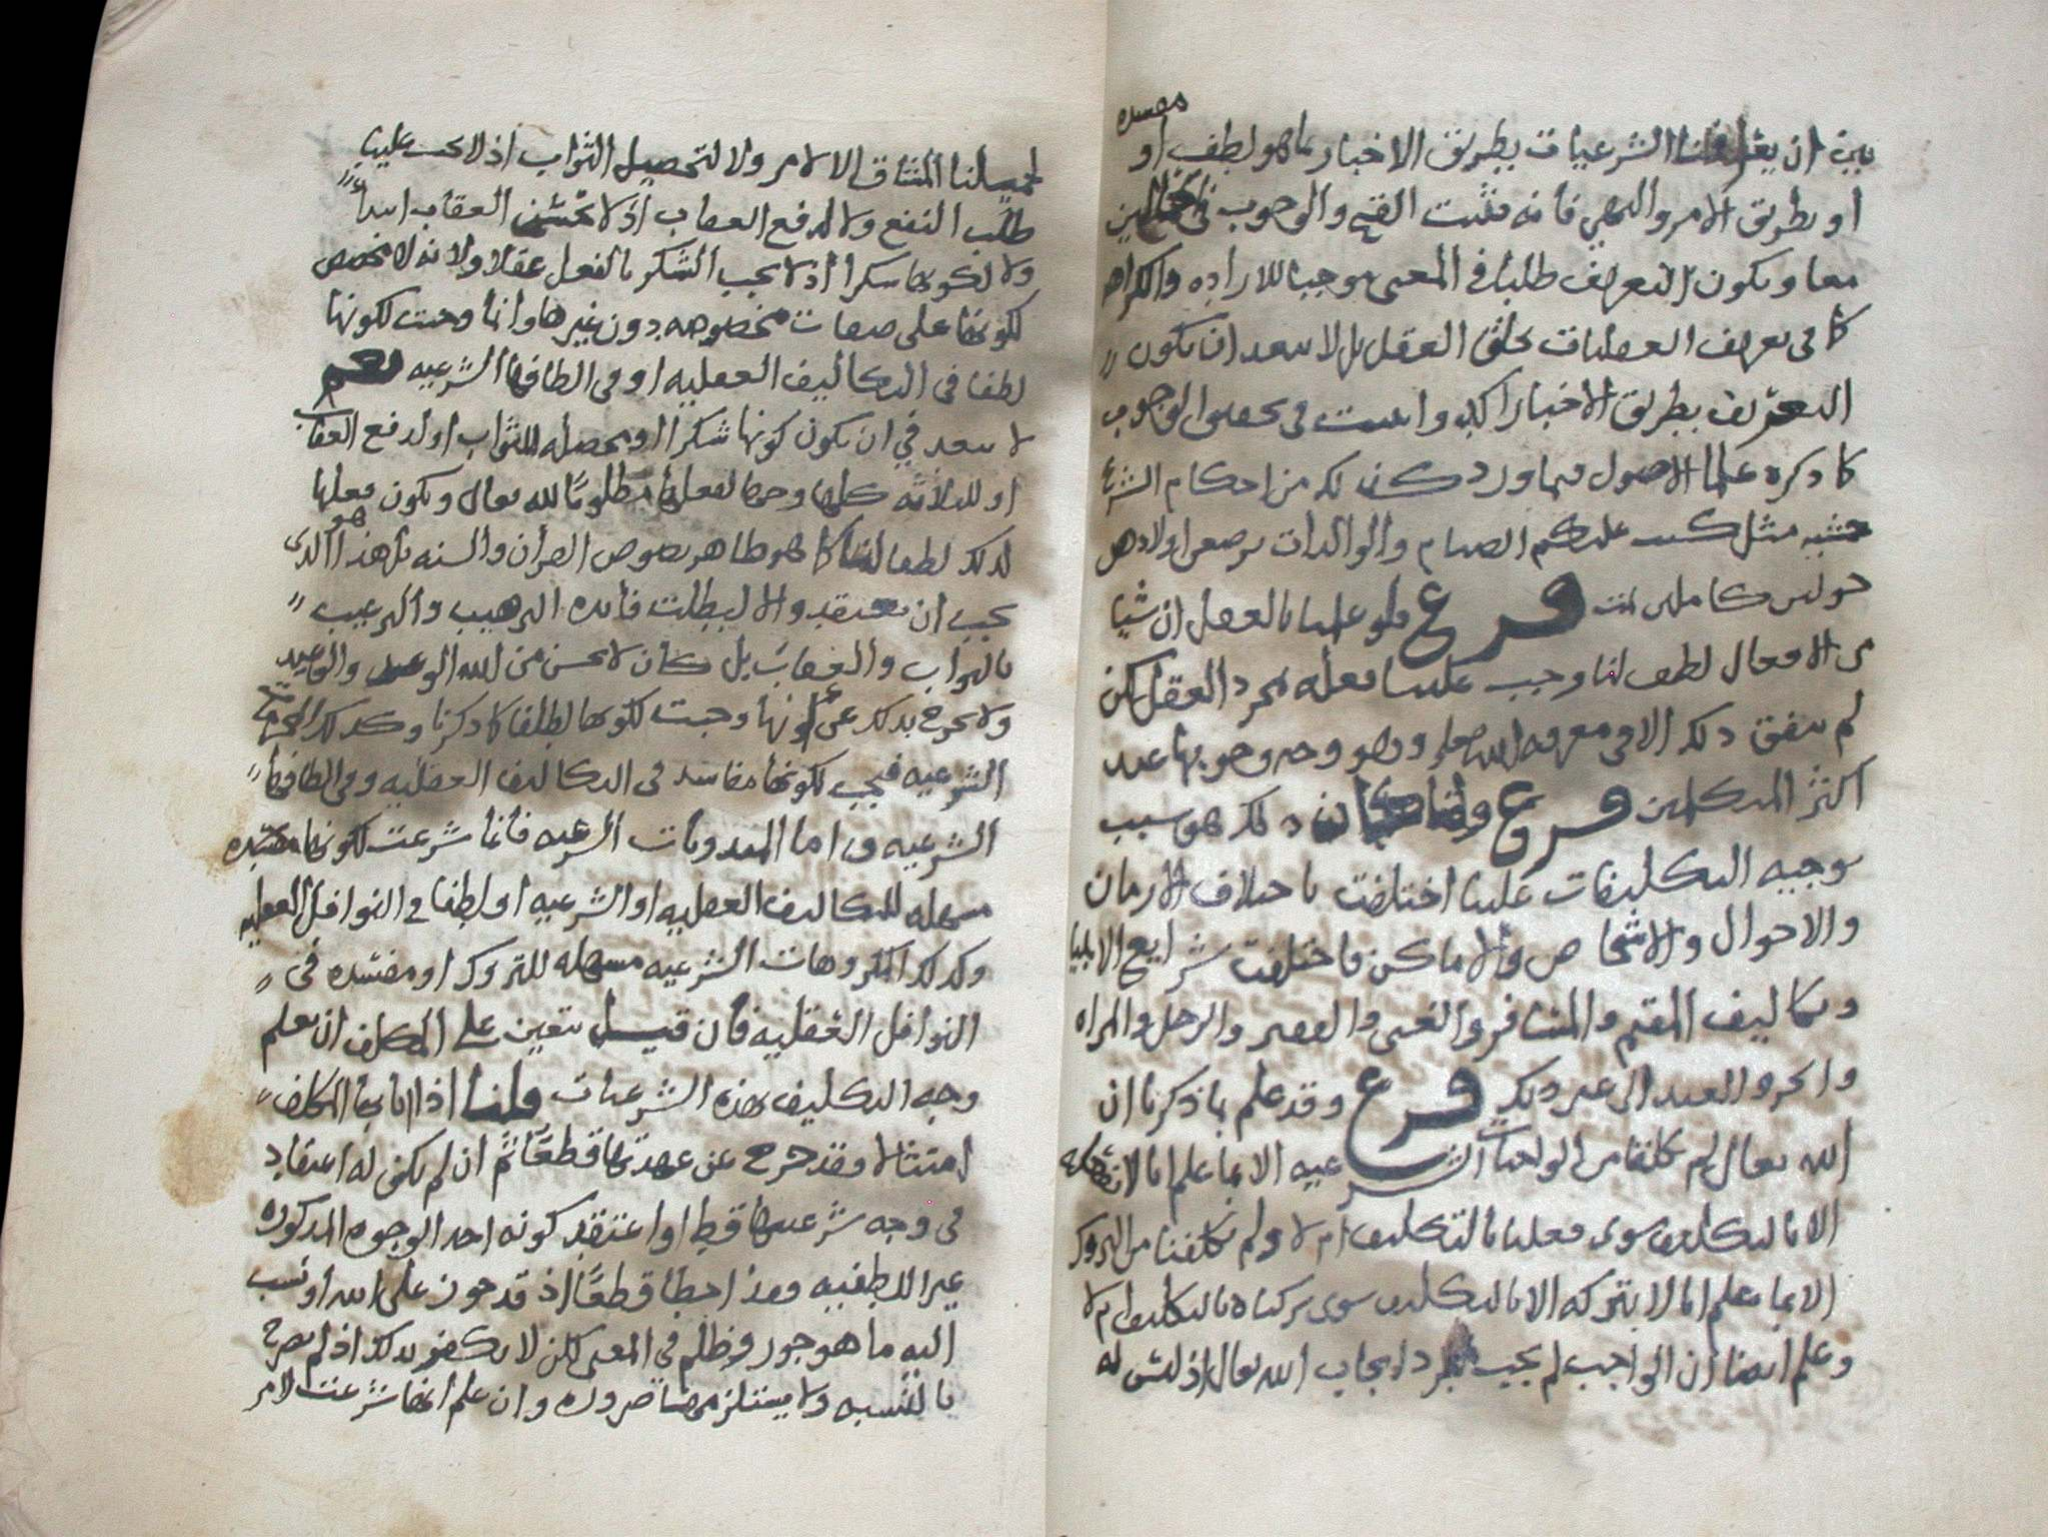 مفسده
بين ان يعرفنا الشرعيات بطريق الاخبار بما هو لطف او
او بطريق الامر والنهي فانه يثبت القبح والوجوب في الحالين
معا ويكون التعريف طلبا في المعنى موجبا للاراده والكراهه
كما في تعريف العقليات بخلق العقل بل لا يبعد ان يكون
التعريف بطريق الاخبار اكد واثبت في تحقيق الوجوب
كما ذكره علما الاصول فيما ورد كذلك من احكام الشرع
مثل كتب عليكم الصيام والوالدات يرضعن اولادهن
حولين كاملين فرع فلو علمنا بالعقل ان شيا
من الافعال لطف لنا وجب علينا فعله بمجرد العقل لكن
لم يتفق ذلك الا في معرفه الله تعالى وهو وجه وجوبها عند
اكثر المتكلمين فرع ولما كان ذلك هو سبب
توجيه التكليفات علينا اختلفت باختلاف الازمان
والاحوال والاشخاص والاماكن فاختلفت شرايع الانبيا
وتكاليف المقيم والمسافر والغني والفقير والرجل والمراه
والحر والعبد الى غير ذلك فرع وقد علم بما ذكرنا ان
الله تعالى لم يكلفنا من الواجبات الشرعيه الا بما علم انا لا نفعله
الا بالتكليف سوى فعلنا بالتكليف ام لا ولم يكلفنا من التروك
الا بما يعلم انا لا نتركه الا بالتكليف سوى تركناه بالتكليف ام لا
وعلم ايضا ان الواجب لم يجب بمجرد ايجاب الله تعالى اذ ليس له
تحميلنا المشاق الا لامر ولا لتحصيل الثواب اذ لا يجب علينا
طلب النفع ولا لدفع العقاب اذ لا يحسن العقاب ابتداء
ولا لكونها شكرا اذ لا يجب الشكر بالفعل عقلا ولانه لا مخصص
لكونها على صفات مخصوصه دون غيرها وانما وجبت لكونها
لطفا في التكاليف العقليه او في الطافها الشرعيه نعم
لا يبعد في ان يكون كونها شكرا او محصله للثواب او لدفع العقاب
او للثلاثه كلها وجها لفعلها مطلوبا لله تعالى ويكون فعلها
لذلك لطفا لنا كما هو ظاهر نصوص القران والسنه بل هذا هو الذي
يجب ان يعتقد والا لبطلت فائده الترهيب والترغيب
بالثواب والعقاب بل كان لا يحسن من الله الوعد والوعيد
ولا يخرج بذلك عن كونها وجبت لكونها لطفا كما ذكرنا وكذلك المقبحات
الشرعيه فيجب لكونها مفاسد في التكاليف العقليه وفي الطافها
الشرعيه واما المندوبات الشرعيه فانما شرعت لكونها
مسهله للتكاليف العقليه او الشرعيه او لطفا في النوافل العقليه
وكذلك المكروهات الشرعيه مسهله للتروك او مفسده في
النوافل العقليه فان قيل يتعين على المكلف ان يعلم
وجه التكليف بهذه الشرعيات قلنا اذا اتا بها المكلف
امتثالا وقد خرج عن عهدتها قطعا ثم ان لم يكن له اعتقاد
في وجه شرعيتها قط او اعتقد كونه احد الوجوه المذكوره
غير اللطفيه وهذا اخطا قطعا اذ قد جوز على الله او نسب
اليه ما هو جور وظلم في المعنى لكن لا يكفر بذلك اذ لم يصرح
بالنسبه ولا يستلزمها ضروره وان علم انها شرعت لامر